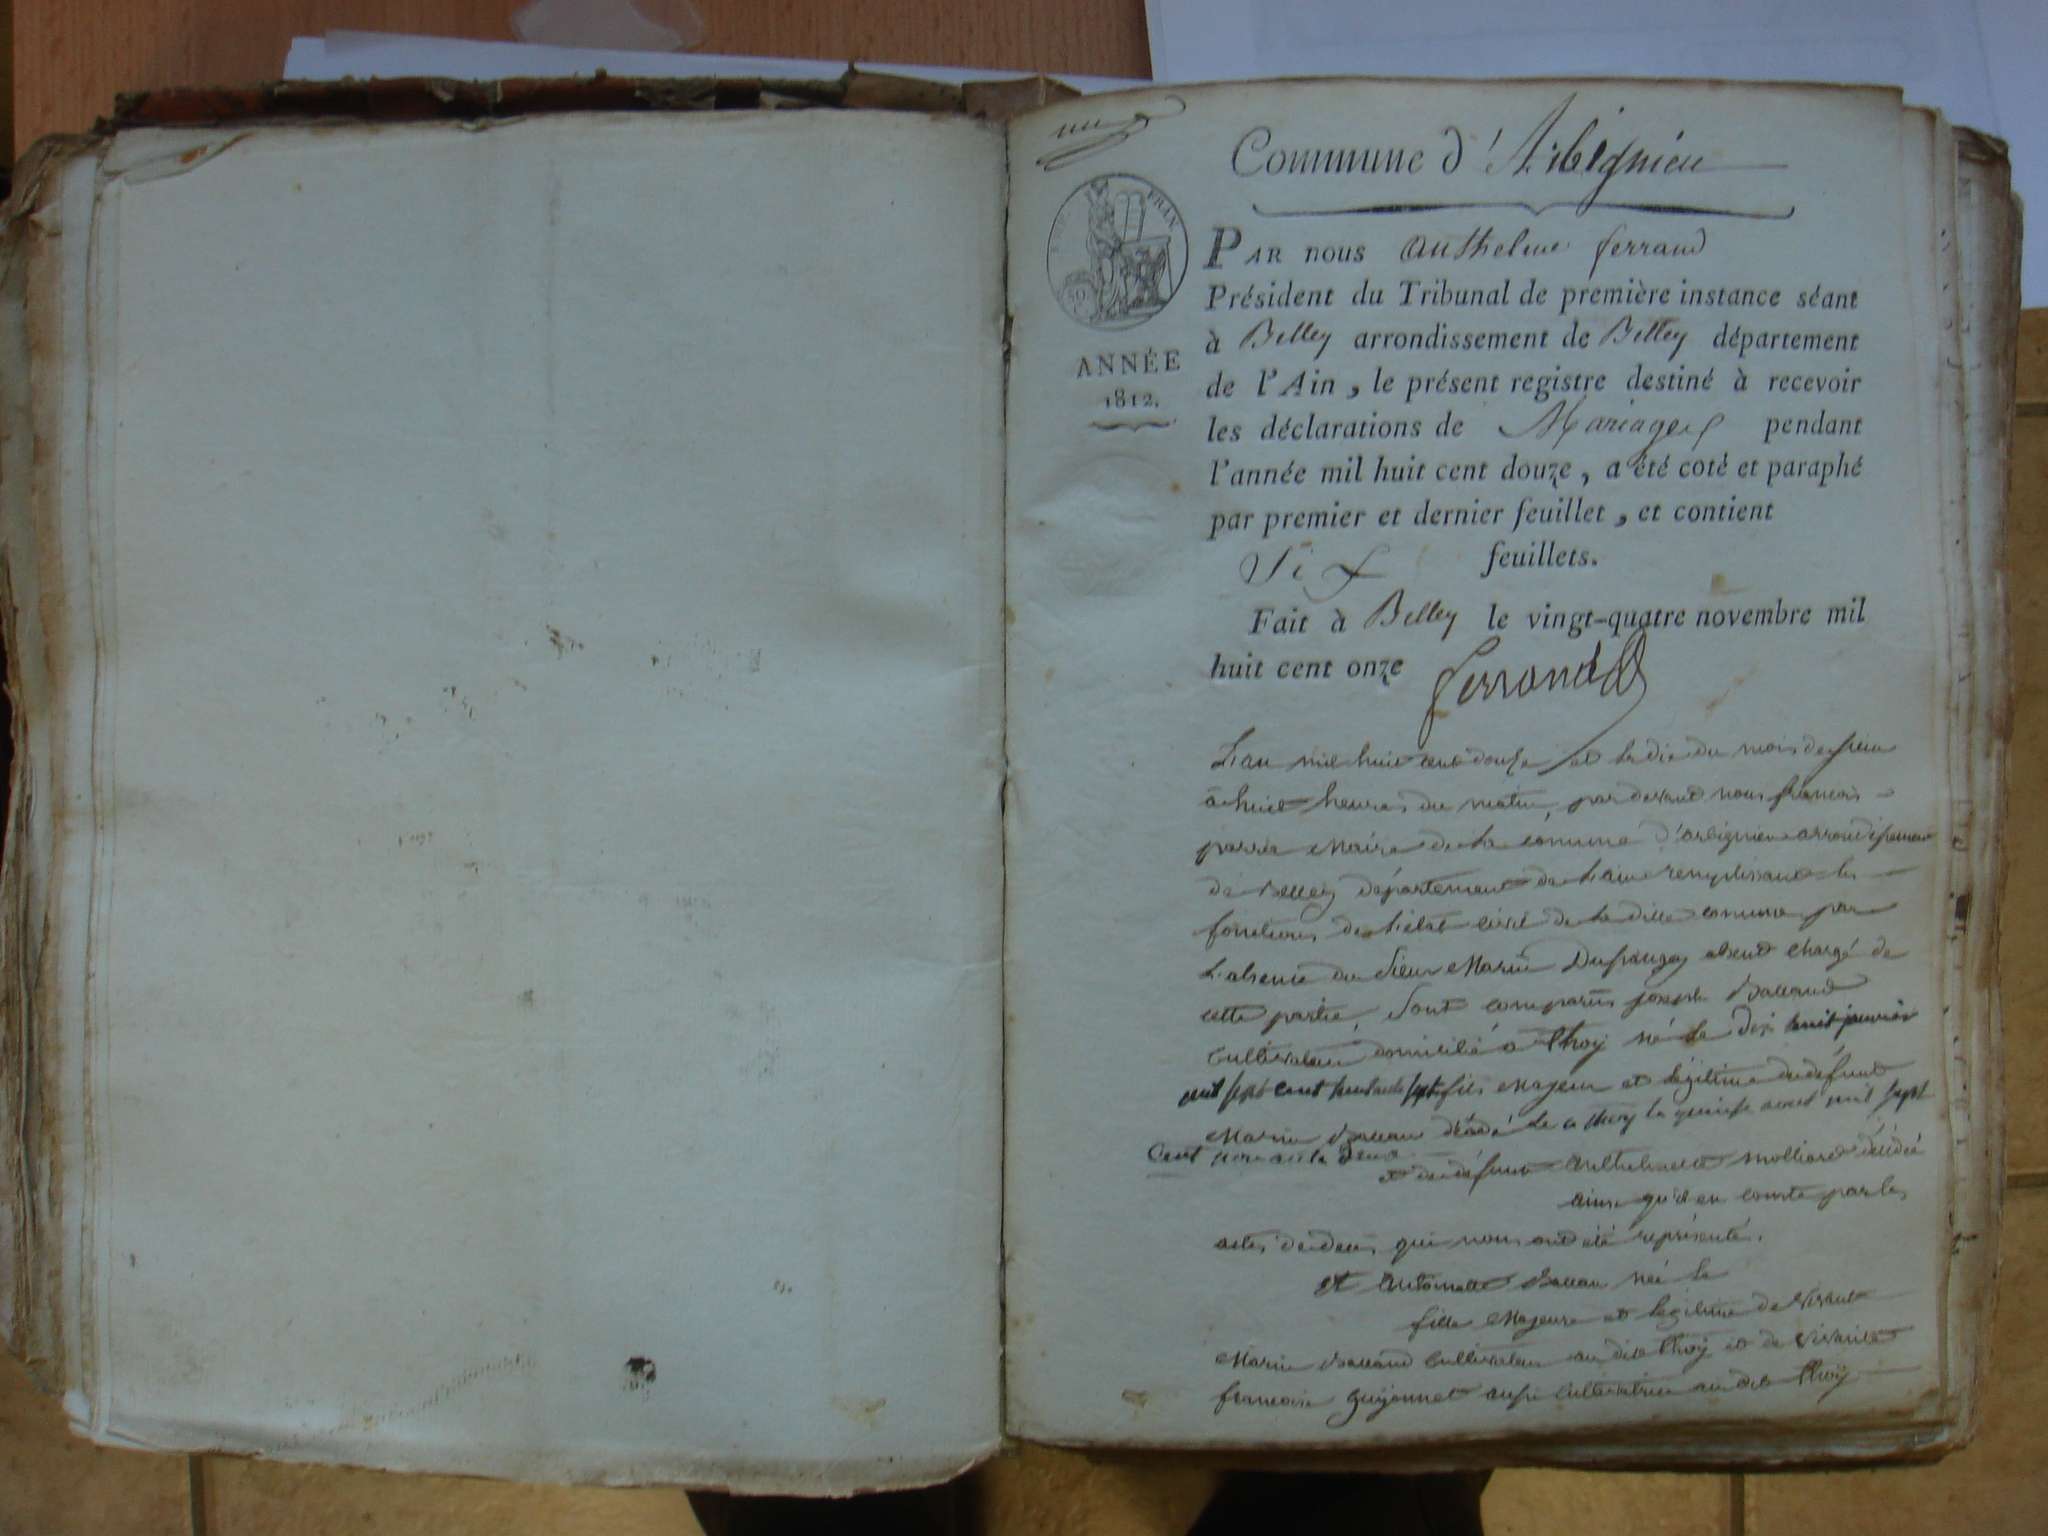 Commune d'Arbignieu
FRAN
50
ANNÉE
1812.
PAR nous Anthelme ferrand
Président du Tribunal de première instance séant
à Belley arrondissement de Belley département
de l'Ain, le présent registre destiné à recevoir
les déclarations de Mariages pendant
l'année mil huit cent douze, a été coté et paraphé
par premier et dernier feuillet, et contient
Six feuillets.
Fait à Belley le vingt-quatre novembre mil
huit cent onze ferrand
L'an mil huit cent douze et le dix du mois de
a huit heures du matin, par devant nous françois
maire de la comune d'arbignieu arrondissement
de Belley département de l'ain remplissant les
fonctions de l'état civil de la dite comune par
L'absence du Sieur Marin absent chargé de
cette partie, Sont comparus joseph
Cultivateur domicilié a thoy né le dix huit janvier
mil sept cent sept fils Majeur et légitime de défunt
Marin décédé a thoy le quinze mil sept
Cent deux
et de défunte anthelmette décédée
ainsi qu'il en conste par les
actes de décès qui nous ont été représenté.
et antoinette née le
fille Majeure et légitime de vivant
Marin Cultivateur au dit thoy et de vivante
françoise guyonnet aussi cultivatrice au dit thoy